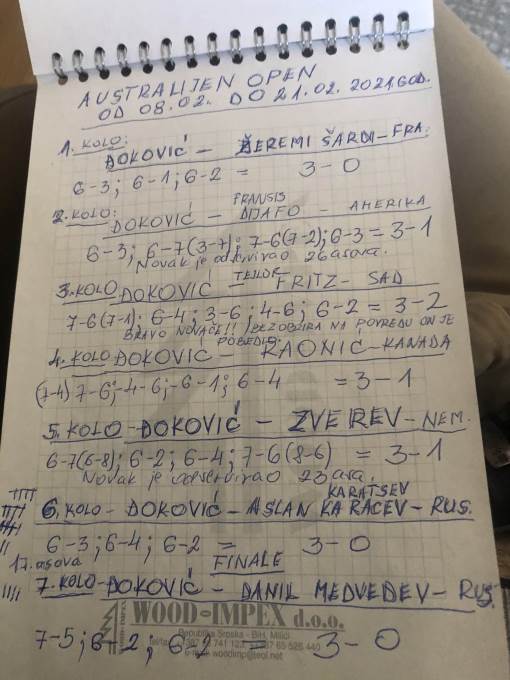 AUSTRALIJEN OPEN
OD 08.02. DO 21.02.2021.GOD.
1. KOLO:
ĐOKOVIĆ – ŽEREMI ŠARDI-FRA.
6-3; 6-1; 6-2 = 3-0
2. KOLO: FRANSIS
ĐOKOVIĆ – DIJAFO – AMERIKA
6-3; 6-7(3-7); 7-6(7-2); 6-3 = 3-1
Novak je odservirao 26 asova.
3. KOLO ĐOKOVIĆ – TEJLOR FRITZ – SAD
7-6(7-1); 6-4; 3-6; 4-6; 6-2 = 3-2
BRAVO NOVAČE!! BEZ OBZIRA NA POVREDU ON JE
POBEDIO:
4. KOLO ĐOKOVIĆ – RAONIĆ-KANADA
(7-4) 7-6; -4-6; -6-1; 6-4 = 3-1
5. KOLO-ĐOKOVIĆ – ZVEREV-NEM.
6-7(6-8); 6-2; 6-4; 7-6(8-6) = 3-1
Novak je odservirao 23 asa.
KARATSEV
6. KOLO- ĐOKOVIĆ – ASLAN KARACEV-RUS.
6-3; 6-4; 6-2 = 3-0
17. asova FINALE
7. KOLO-ĐOKOVIĆ – DANIL MEDVEDEV-RUS.
WOOD-IMPEX d.o.o.
Republika Srpska - BiH, Milići
7-5; 6-2; 6-2 = 3-0